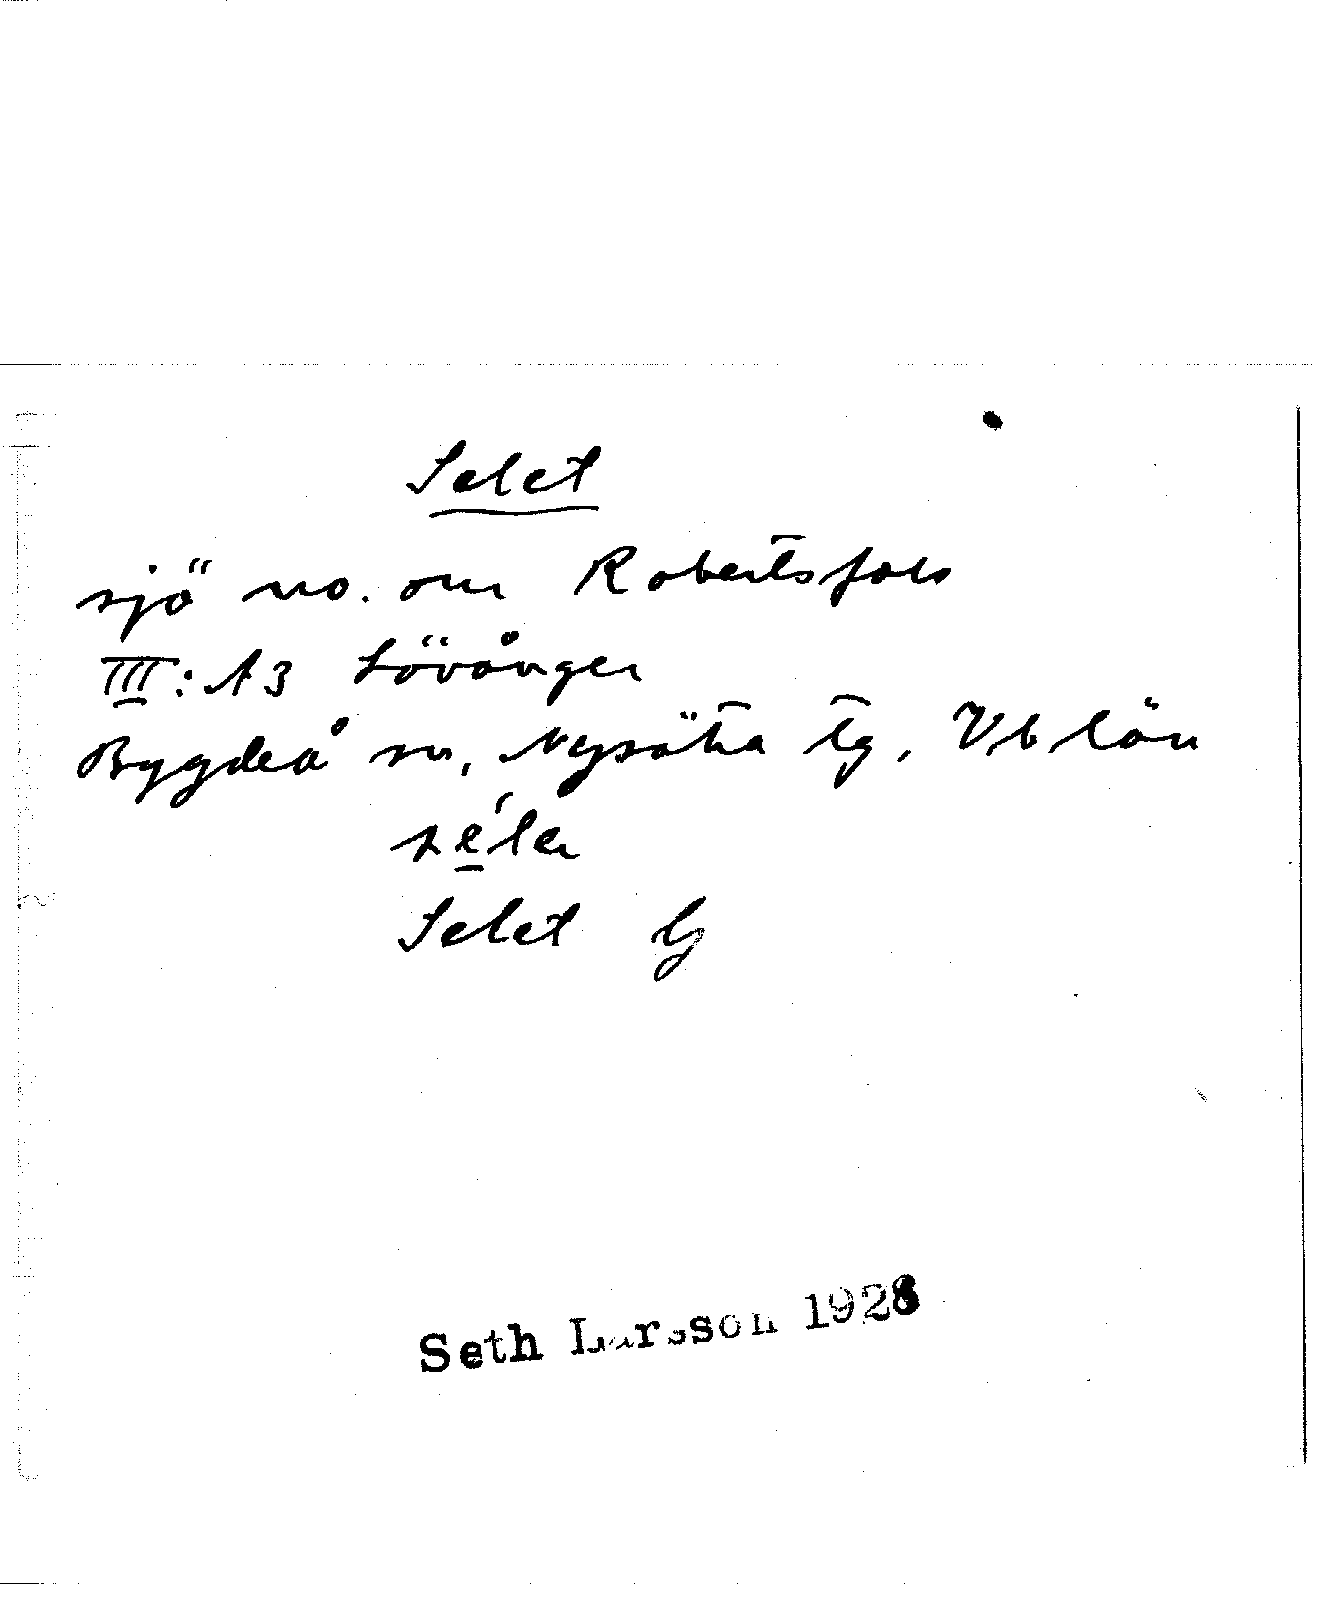 Selet
sjö no. om Robertsfors
III:A3 Lövånger
Bygdeå sn, Nysätra tg, Vb län
Selet G
Seth Larsson 1928